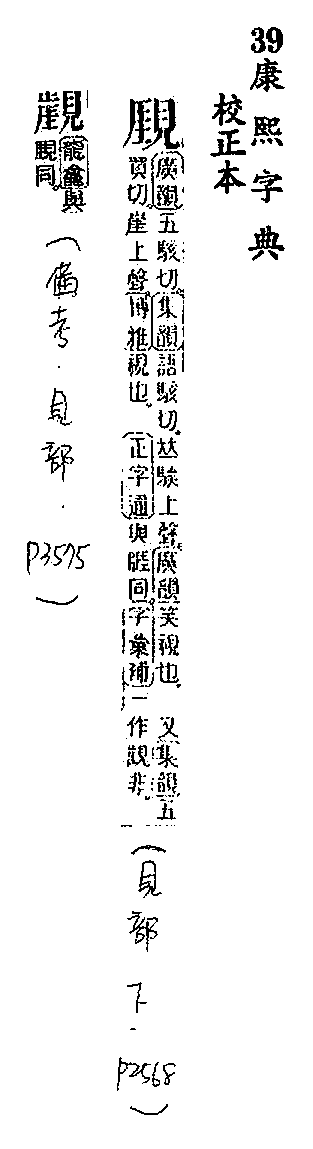 39康熙字典
校正本
廣韻五駭切集韻語駭切𠀤騃上聲廣韻笑視也 又集韻五
買切崖上聲博雅視也 正字通與睚同字彙補一作非
(見部下.P2568)
龍龕與
同
(備考.見部.P3575)